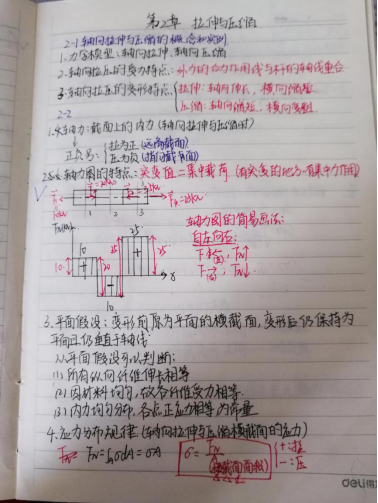 第2章 拉伸与压缩
2-1 轴向拉伸与压缩的概念和实例
1.力学模型:轴向拉伸、轴向压缩
2.轴向拉压的受力特点:外力的合力作用线与杆的轴线重合
3.轴向拉压的变形特点:拉伸:轴向伸长,横向缩短
压缩:轴向缩短,横向变粗
2-2
1.轴力:截面上的内力(轴向拉伸与压缩时)
正负号:拉为正(远离截面)
压为负(指向截面)
2. 轴力图的特点:突变值=集中载荷
1 2 3
轴力图的简易画法:
自左向右:
10 10 25 25 10 x
3.平面假设:变形前原为平面的横截面,变形后仍保持为
平面且仍垂直于轴线
从平面假设可以判断:
(1)所有纵向纤维伸长相等
(2)因材料均匀,故各纤维受力相等
(3)内力均匀分布,各点正应力相等为常量
4.应力分布规律(轴向拉伸与压缩横截面的应力)
FN=∫σdA=σA σ=FN/A(横截面面积) +:拉
-:压
deli得力